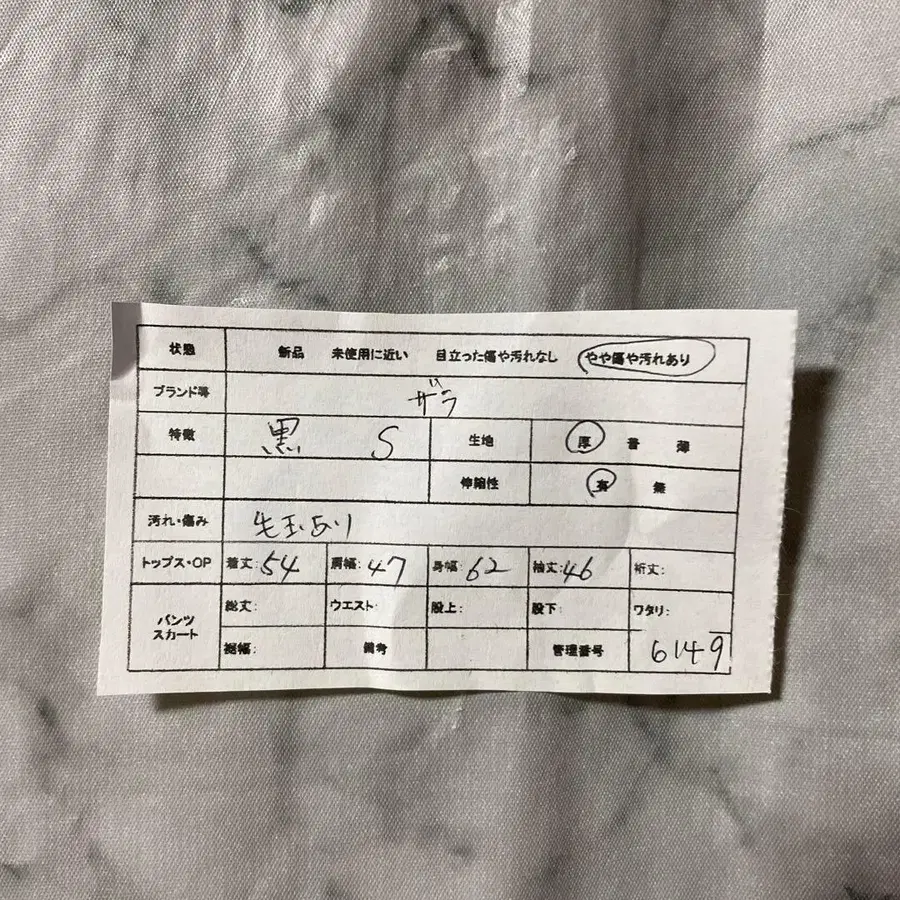 状態 新品 未使用に近い 目立った傷や汚れなし やや傷や汚れあり
ブランド等 ザラ
特徴 黒 S 生地 厚 普 薄
伸縮性 有 無
汚れ・傷み 毛玉あり
トップス・OP 着丈:54 肩幅:47 身幅:62 袖丈:46 裄丈:
パンツ スカート 総丈: ウエスト: 股上: 股下: ワタリ:
裾幅: 備考 管理番号 6149